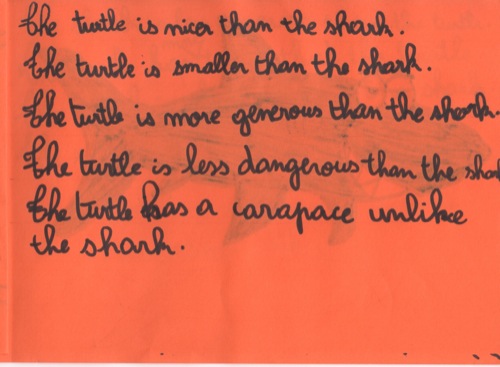 The turtle is nicer than the shark.
the turtle is smaller than the shark.
The turtle is more generous than the shark.
The turtle is less dangerous than the shar
The turtle has a carapace unlike
the shark.